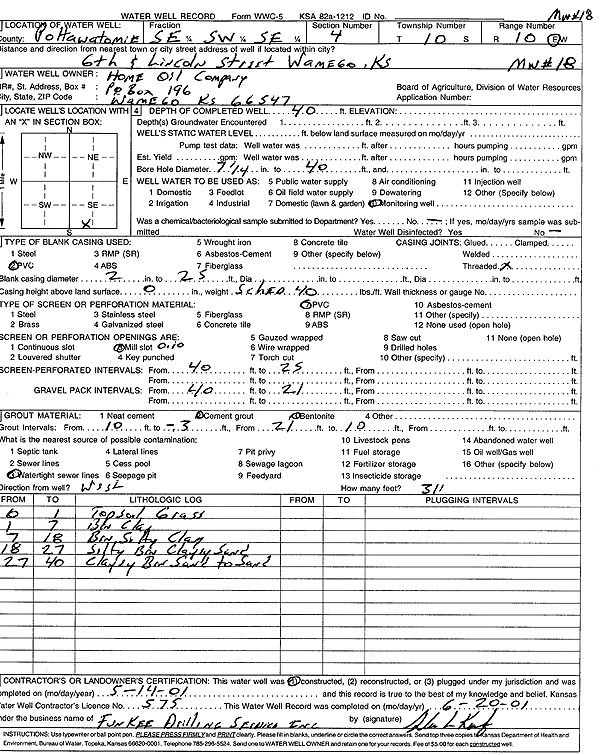 WATER WELL RECORD Form WWC-5 KSA 82a-1212 ID No. MW#18
LOCATION OF WATER WELL: Fraction Section Number Township Number Range Number
County: Pottawatomie SE ¼ SW ¼ SE ¼ 4 T 10 S R 10 E/W
Distance and direction from nearest town or city street address of well if located within city?
6th & Lincoln Street Wamego, Ks MW#18
WATER WELL OWNER: Home Oil Company
RR#, St. Address, Box # : PO Box 196 Board of Agriculture, Division of Water Resources
City, State, ZIP Code : Wamego Ks 66547 Application Number:
LOCATE WELL'S LOCATION WITH AN "X" IN SECTION BOX:
N
NW NE
W E
SW SE
X
1 Mile
4 DEPTH OF COMPLETED WELL 40 ft. ELEVATION:
Depth(s) Groundwater Encountered 1. ft. 2. ft. 3. ft.
WELL'S STATIC WATER LEVEL ft. below land surface measured on mo/day/yr
Pump test data: Well water was ft. after hours pumping gpm
Est. Yield gpm: Well water was ft. after hours pumping gpm
Bore Hole Diameter 7 1/4 in. to 40 ft., and in. to ft.
WELL WATER TO BE USED AS: 5 Public water supply 8 Air conditioning 11 Injection well
1 Domestic 3 Feedlot 6 Oil field water supply 9 Dewatering 12 Other (Specify below)
2 Irrigation 4 Industrial 7 Domestic (lawn & garden) 10 Monitoring well
Was a chemical/bacteriological sample submitted to Department? Yes No ; If yes, mo/day/yrs sample was sub-
mitted Water Well Disinfected? Yes No
TYPE OF BLANK CASING USED: 5 Wrought iron 8 Concrete tile CASING JOINTS: Glued Clamped
1 Steel 3 RMP (SR) 6 Asbestos-Cement 9 Other (specify below) Welded
2 PVC 4 ABS 7 Fiberglass Threaded X
Blank casing diameter 2 in. to 25 ft., Dia in. to ft., Dia in. to ft.
Casing height above land surface 0 in., weight Sched 40 lbs./ft. Wall thickness or gauge No.
TYPE OF SCREEN OR PERFORATION MATERIAL: 7 PVC 10 Asbestos-cement
1 Steel 3 Stainless steel 5 Fiberglass 8 RMP (SR) 11 Other (specify)
2 Brass 4 Galvanized steel 6 Concrete tile 9 ABS 12 None used (open hole)
SCREEN OR PERFORATION OPENINGS ARE: 5 Gauzed wrapped 8 Saw cut 11 None (open hole)
1 Continuous slot 3 Mill slot 0.10 6 Wire wrapped 9 Drilled holes
2 Louvered shutter 4 Key punched 7 Torch cut 10 Other (specify) ft.
SCREEN-PERFORATED INTERVALS: From 40 ft. to 25 ft., From ft. to ft.
From ft. to ft., From ft. to ft.
GRAVEL PACK INTERVALS: From 40 ft. to 21 ft., From ft. to ft.
From ft. to ft., From ft. to ft.
GROUT MATERIAL: 1 Neat cement 2 Cement grout 3 Bentonite 4 Other
Grout Intervals: From 10 ft. to .3 ft., From 21 ft. to 10 ft., From ft. to ft.
What is the nearest source of possible contamination: 10 Livestock pens 14 Abandoned water well
1 Septic tank 4 Lateral lines 7 Pit privy 11 Fuel storage 15 Oil well/Gas well
2 Sewer lines 5 Cess pool 8 Sewage lagoon 12 Fertilizer storage 16 Other (specify below)
3 Watertight sewer lines 6 Seepage pit 9 Feedyard 13 Insecticide storage
Direction from well? West How many feet? 311
FROM TO LITHOLOGIC LOG FROM TO PLUGGING INTERVALS
0 1 Topsoil Grass
1 7 Brn Clay
7 18 Brn Silty Clay
18 27 Silty Brn Clayey Sand
27 40 Clayey Brn Sand to Sand
CONTRACTOR'S OR LANDOWNER'S CERTIFICATION: This water well was (1) constructed, (2) reconstructed, or (3) plugged under my jurisdiction and was
completed on (mo/day/year) 5-14-01 and this record is true to the best of my knowledge and belief. Kansas
Water Well Contractor's Licence No. 575 This Water Well Record was completed on (mo/day/yr) 6-20-01
under the business name of Funkee Drilling Service Inc by (signature)
INSTRUCTIONS: Use typewriter or ball point pen. PLEASE PRESS FIRMLY and PRINT clearly. Please fill in blanks, underline or circle the correct answers. Send top three copies to Kansas Department of Health and
Environment, Bureau of Water, Topeka, Kansas 66620-0001. Telephone 785-296-5524. Send one to WATER WELL OWNER and retain one for your records. Fee of $5.00 for each constructed well.